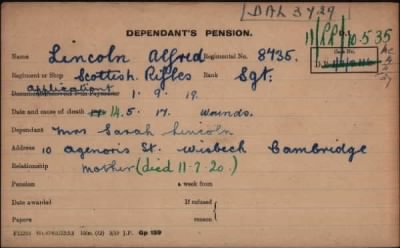 DAL 3729
DEPENDANT'S PENSION.
11/ 10.5.35
Name Lincoln Alfred Regimental No. 8735.
Regiment or Ship Scottish Rifles Rank Sgt.
Application 1. 9. 19
Date and cause of death 14.5. 17. Wounds.
Dependant Mrs Sarah Lincoln
Address 10 Agenoris St. Wisbech Cambridge
Relationship Mother (died 11-7-20.)
Pension a week from
Date awarded If refused
Papers reason
Gp 139